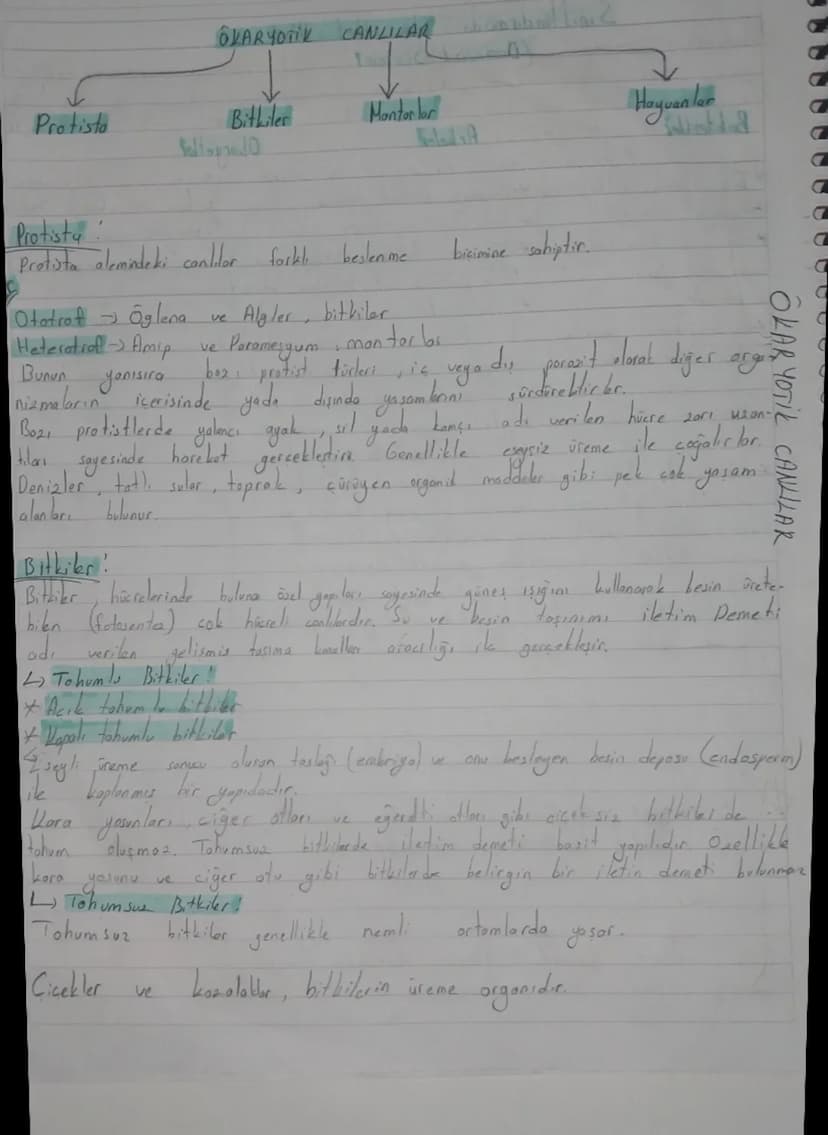 ÖKARYOTİK CANLILAR
Protista Bitkiler Mantarlar Hayvanlar
Protista :
Protista alemindeki canlılar farklı beslenme biçimine sahiptir.
Ototrof → Öglena ve Algler, bitkiler
Heterotrof → Amip ve Paramesyum, mantarlar
Bunun yanısıra bazı protist türleri, iç veya dış parazit olarak diğer orga-
nizmaların içerisinde yada dışında yaşamlarını sürdürebilirler.
Bazı protistlerde yalancı ayak, sil yada kamçı adı verilen hücre zarı uzan-
tıları sayesinde hareket gerçekleştirir. Genellikle eşeysiz üreme ile çoğalırlar.
Denizler, tatlı sular, toprak, çürüyen organik maddeler gibi pek çok yaşam
alanları bulunur.
Bitkiler :
Bitkiler, hücrelerinde buluna özel yapıları sayesinde güneş ışığını kullanarak besin ürete-
bilen (fotosentez) çok hücreli canlılardır. Su ve besin taşınımı iletim Demeti
adı verilen gelişmiş taşıma kanalları aracılığı ile gerçekleşir.
↳ Tohumlu Bitkiler !
* Açık tohumlu bitkiler
* Kapalı tohumlu bitkiler
Eşeyli üreme sonucu oluşan taslağı (embriyo) ve onu besleyen besin deposu (endosperm)
ile kaplanmış bir yapıdadır.
Kara yosunları, ciğer otları ve eğrelti otları gibi çiçeksiz bitkiler de
tohum oluşmaz. Tohumsuz bitkilerde iletim demeti basit yapılıdır. Özellikle
kara yosunu ve ciğer otu gibi bitkilerde belirgin bir iletim demeti bulunmaz
↳ Tohumsuz Bitkiler !
Tohumsuz bitkiler genellikle nemli ortamlarda yaşar.
Çiçekler ve kozalaklar, bitkilerin üreme organıdır.
ÖKARYOTİK CANLILAR